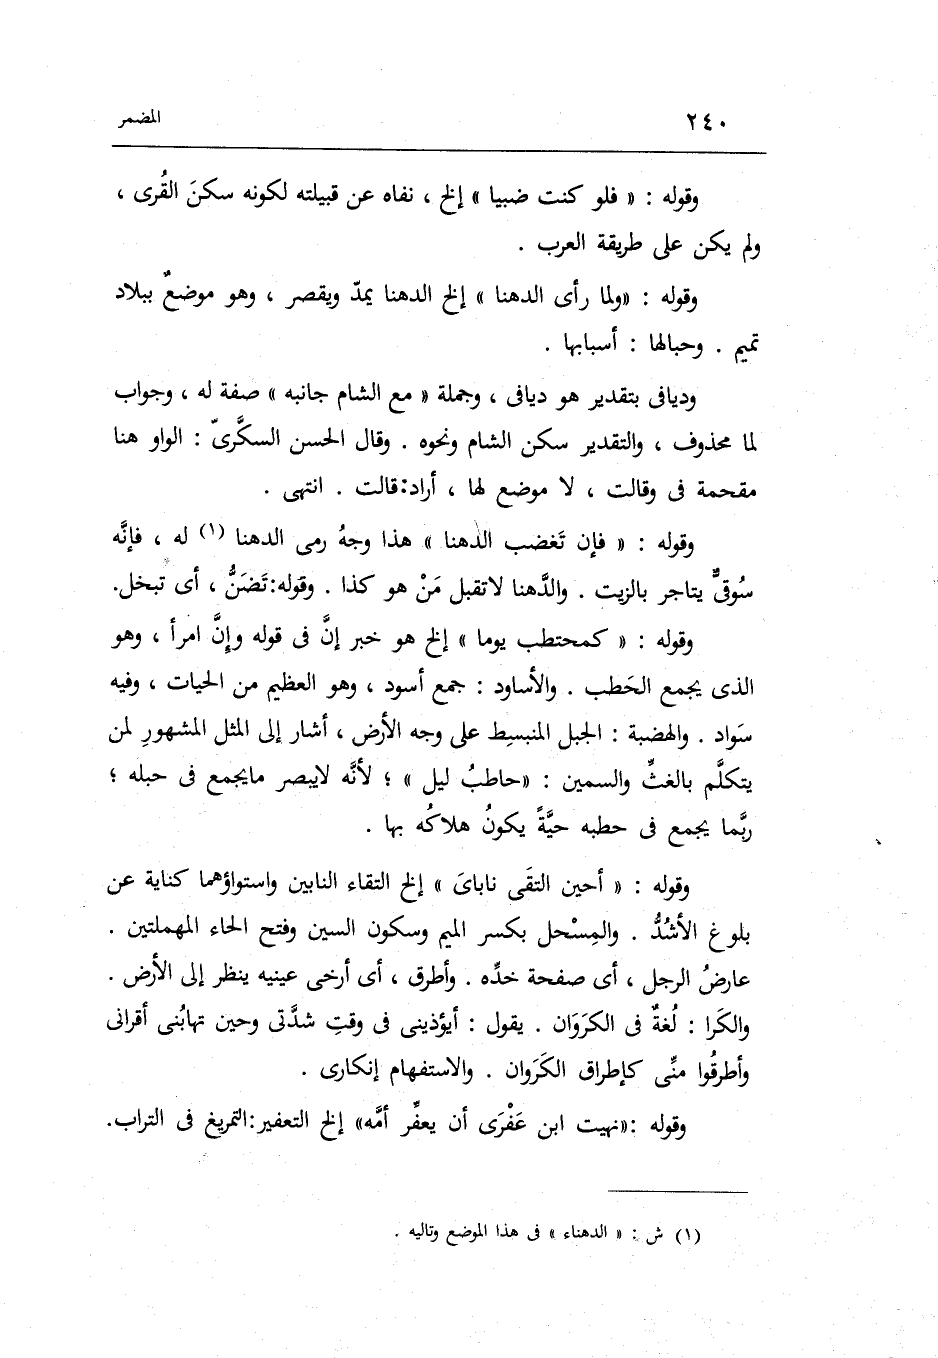 ٢٤٠
المضمر
وقوله : « فلو كنت ضبيا » إلخ ، نفاه عن قبيلته لكونه سكنَ القُرى ،
ولم يكن على طريقة العرب .
وقوله : «ولما رأى الدهنا » إلخ الدهنا يمدّ ويقصر ، وهو موضعٌ ببلاد
تميم . وحبالها : أسبابها .
وديافى بتقدير هو ديافى ، وجملة « مع الشام جانبه » صفة له ، وجواب
لما محذوف ، والتقدير سكن الشام ونحوه . وقال الحسن السكَّرىّ : الواو هنا
مقحمة فى وقالت ، لا موضع لها ، أراد:قالت . انتهى .
وقوله : « فإن تَغضب الدهنا » هذا وجهُ رمى الدهنا (١) له ، فإنَّه
سُوقىٌّ يتاجر بالزيت . والدَّهنا لاتقبل مَنْ هو كذا . وقوله:تَضَنُّ ، أى تبخل.
وقوله : « كمحتطب يوما » إلخ هو خبر إنَّ فى قوله وإنَّ امرأ ، وهو
الذى يجمع الحَطب . والأساود : جمع أسود ، وهو العظيم من الحيات ، وفيه
سَواد . والهضبة : الجبل المنبسِط على وجه الأرض ، أشار إلى المثل المشهورِ لمن
يتكلَّم بالغثِّ والسمين : «حاطبُ ليل » ؛ لأنَّه لايبصر مايجمع فى حبله ؛
ربَّما يجمع فى حطبه حيَّةً يكونُ هلاكُه بها .
وقوله : « أحين التقَى ناباىَ » إلخ التقاء النابين واستواؤهما كناية عن
بلوغ الأشُدُّ . والمِسْحل بكسر الميم وسكون السين وفتح الحاء المهملتين .
عارضُ الرجل ، أى صفحة خدِّه . وأطرق ، أى أرخى عينيه ينظر إلى الأرض .
والكَرا : لُغةٌ فى الكرَوَان . يقول : أيؤذينى فى وقتِ شدَّتى وحين تهابُنى أقرانى
وأطرقُوا منِّى كإطراق الكَرَوان . والاستفهام إنكارى .
وقوله :«نهيت ابن عَفْرَى أن يعفِّر أمَّه» إلخ التعفير:التمريغ فى التراب.
(١) ش : « الدهناء » فى هذا الموضع وتاليه .